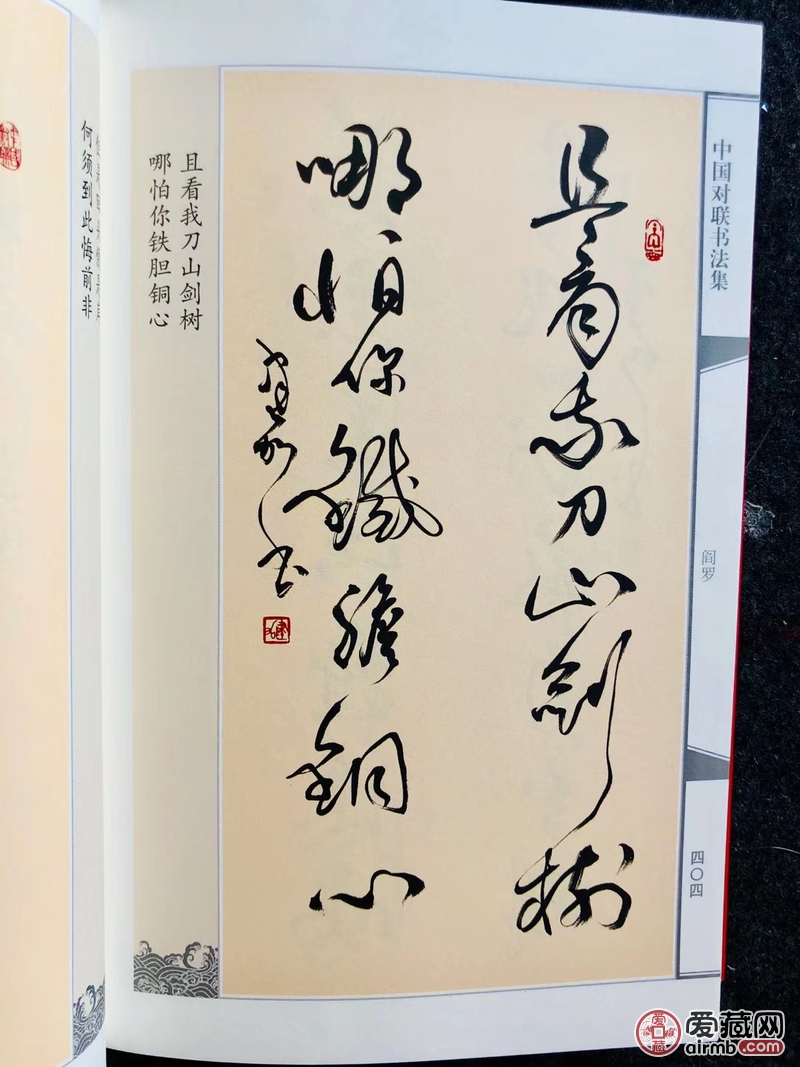 中国对联书法集
阎罗
四〇四
且看我刀山剑树
哪怕你铁胆铜心
且看我刀山劍樹
哪怕你鐵膽銅心
书
何须到此悔前非
爱藏网
airmb.com